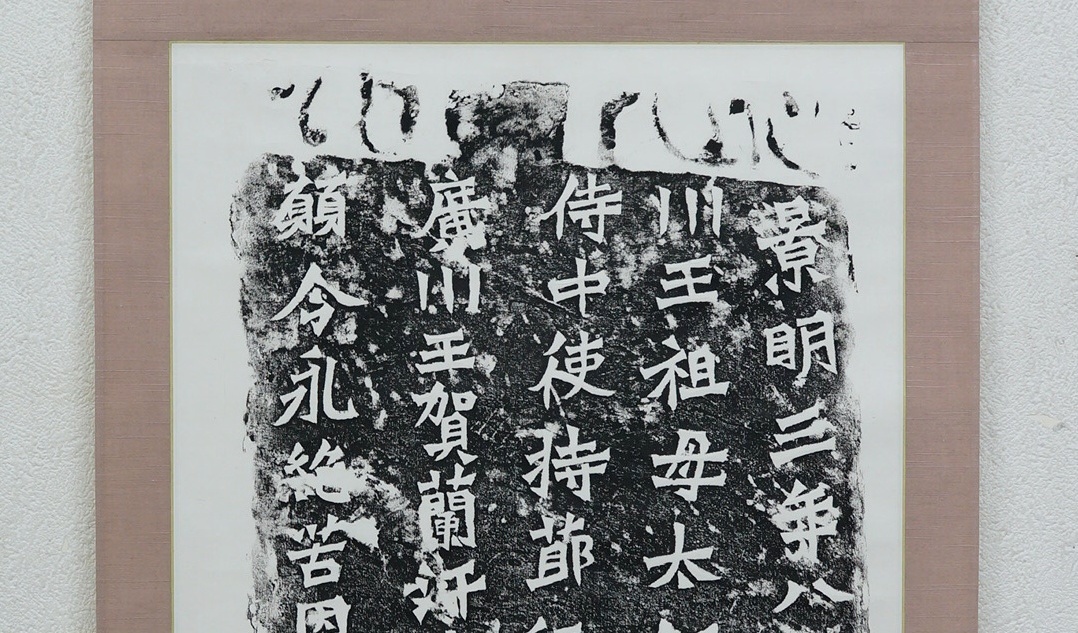 景明三年八
川王祖母太
侍中使持節
廣川王賀蘭汗
願令永絕苦因